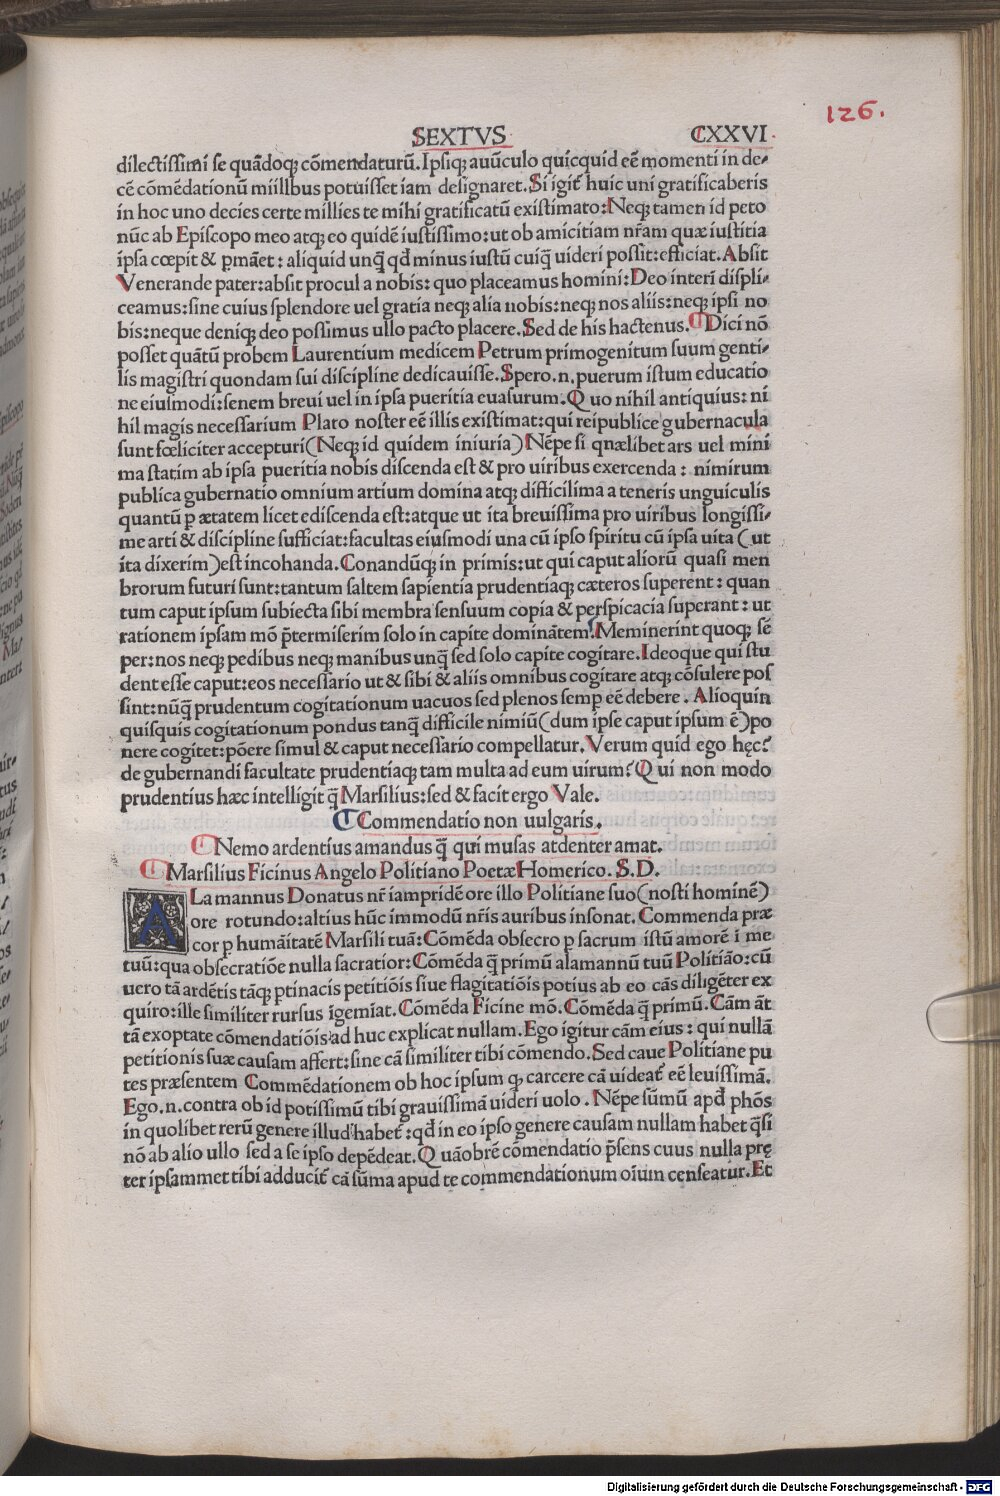 126.
SEXTVS CXXVI.
dilectissimi se quādoq; cōmendaturū. Ipsiq; auūculo quicquid eē momenti in de-
cē cōmēdationū miillbus potuisset iam designaret. Si igit̄ huic uni gratificaberis
in hoc uno decies certe millies te mihi gratificatū existimato: Neq; tamen id peto
nūc ab Episcopo meo atq; eo quidē iustissimo: ut ob amicitiam nr̄am quæ iustitia
ipsa cœpit & p̱māet: aliquid unq̄ qd̄ minus iustū cuiq̄ uideri possit: efficiat. Absit
Venerande pater: absit procul a nobis: quo placeamus homini: Deo interī displi-
ceamus: sine cuius splendore uel gratia neq; alia nobis: neq; nos aliis: neq; ipsi no
bis: neque deniq; deo possimus ullo pacto placere. Sed de his hactenus. ¶ Dici nō
posset quātū probem Laurentium medicem Petrum primogenitum suum genti-
lis magistri quondam sui discipline dedicauisse. Spero .n. puerum istum educatio
ne eiusmodi: senem breui uel in ipsa pueritia euasurum. Quo nihil antiquius: ni
hil magis necessarium Plato noster eē illis existimat: qui reipublice gubernacula
sunt fœliciter accepturi (Neq; id quidem iniuria) Nēpe si qnælibet ars uel mini
ma statim ab ipsa pueritia nobis discenda est & pro uiribus exercenda: nimirum
publica gubernatio omnium artium domina atq; difficilima a teneris unguiculis
quantū p̱ ætatem licet ediscenda est: atque ut ita breuissima pro uiribus longissi-
me arti & discipline sufficiat: facultas eiusmodi una cū ipso spiritu cū ipsa uita (ut
ita dixerim) est incohanda. Conandūq; in primis: ut qui caput aliorū quasi mem
brorum futuri sunt: tantum saltem sapientia prudentiaq; cæteros superent: quan
tum caput ipsum subiecta sibi membra sensuum copia & perspicacia superant: ut
rationem ipsam mō p̄termiserim solo in capite dominātem. Meminerint quoq; sē
per: nos neq; pedibus neq; manibus unq̄ sed solo capite cogitare. Ideoque qui stu
dent esse caput: eos necessario ut & sibi & aliis omnibus cogitare atq; cōsulere pos
sint: nūq̄ prudentum cogitationum uacuos sed plenos semp̱ eē debere. Alioquin
quisquis cogitationum pondus tanq̄ difficile nimiū (dum ipse caput ipsum ē) po
nere cogitet: pōere simul & caput necessario compellatur. Verum quid ego hęc?
de gubernandi facultate prudentiaq; tam multa ad eum uirum? Qui non modo
prudentius hæc intelligit q̄ Marsilius: sed & facit ergo Vale.
¶ Commendatio non uulgaris.
¶ Nemo ardentius amandus q̄ qui musas atdenter amat.
¶ Marsilius Ficinus Angelo Politiano Poetæ Homerico. S. D.
ALamannus Donatus nr̄ iampridē ore illo Politiane suo (nosti hominē)
ore rotundo: altius hūc immodū nr̄is auribus insonat. Commenda præ
cor p̱ humāitatē Marsili tuā: Cōmēda obsecro p̱ sacrum istū amorē i me
tuū: qua obsecratiōe nulla sacratior: Cōmēda q̄ primū alamannū tuū Politiāo: cū
uero tā ardētis tāq; p̱tinacis petitiōis siue flagitatiōis potius ab eo cās diligēter ex
quiro: ille similiter rursus īgemiat. Cōmēda Ficine mō. Cōmēda q̄ primū. Cām āt
tā exoptate cōmendatiōis ad huc explicat nullam. Ego igitur cām eius: qui nullā
petitionis suæ causam affert: sine cā similiter tibi cōmendo. Sed caue Politiane pu
tes præsentem Commēdationem ob hoc ipsum q; carcere cā uideat̄ eē leuissimā.
Ego .n. contra ob id potissimū tibi grauissimā uideri uolo. Nēpe sūmū apd̄ phōs
in quolibet rerū genere illud habet̄: qd̄ in eo ipso genere causam nullam habet q̄si
nō ab alio ullo sed a se ipso depēdeat. Quāobrē cōmendatio p̄sens cuus nulla prę
ter ipsammet tibi adducit̄ cā sūma apud te commendationum oīum censeatur. Et
Digitalisierung gefördert durch die Deutsche Forschungsgemeinschaft - DFG